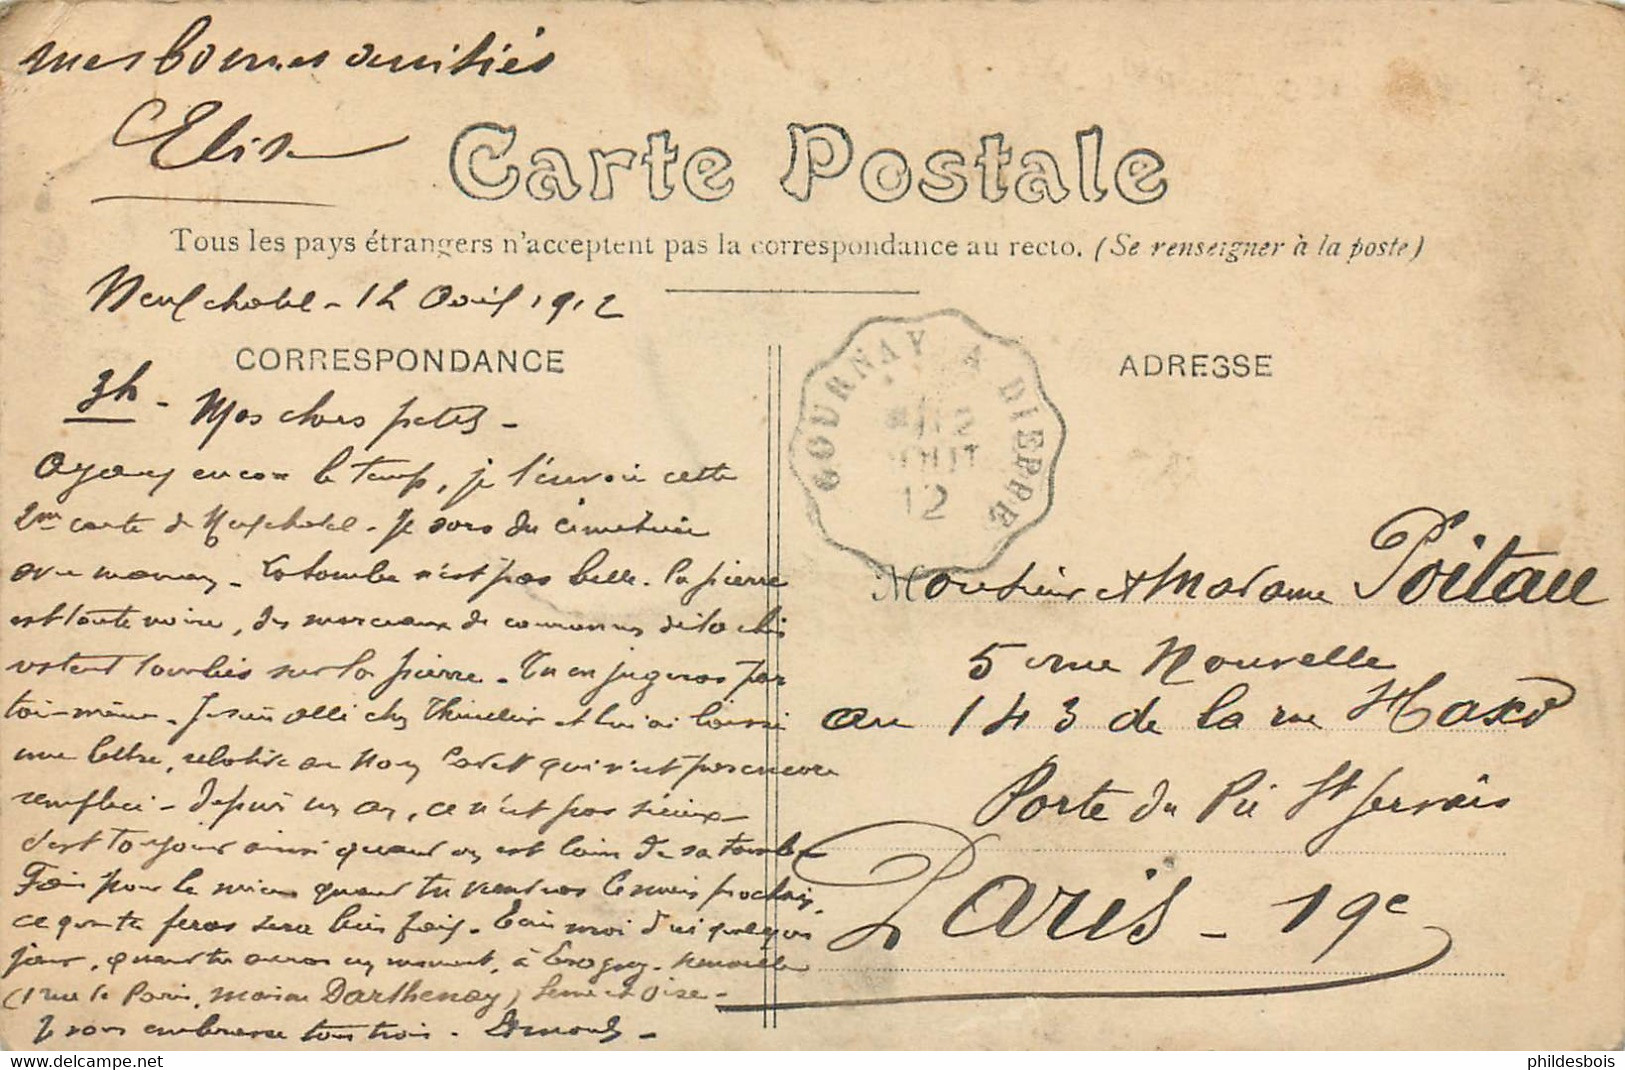 mes bonnes amitiés
Elise
Carte Postale
Tous les pays étrangers n'acceptent pas la correspondance au recto. (Se renseigner à la poste)
Neufchatel - 12 Aout 1912
CORRESPONDANCE
3h - Mes chers petits -
Ayant encore le temps, je t'envoie cette
2me carte de Neufchatel. Je sors du cimetière
avec maman. La tombe n'est pas belle. la pierre
est toute noire, des morceaux de couronnes
restent tombés sur la pierre. Tu en jugeras par
toi-même. Je suis allé chez et lui ai laissé
une lettre, relative au qui n'est pas encore
remplacé - depuis un an, ce n'est pas sérieux -
c'est toujours ainsi quand on est loin de sa tombe
Fais pour le mieux quand tu viendras le mois prochain.
ce que tu feras sera bien fait. Ecris moi d'ici quelques
jours, quand tu auras un moment, à Eragny. Neuville
(1 rue de Paris, maison Darthenay) Seine et Oise -
Je vous embrasse tous trois. Edmond -
GOURNAY A DIEPPE
12
AOUT
12
ADRESSE
Monsieur et Madame Poitau
5 rue Nouvelle
au 143 de la rue Haxo
Porte du Pré St Gervais
Paris - 19e
phildesbois